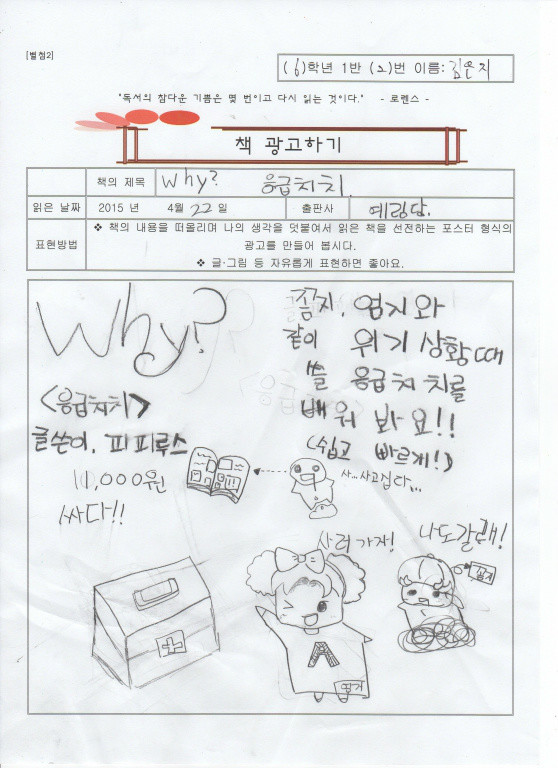 [별첨2]
(6)학년 1반 (2)번 이름: 김은지
"독서의 참다운 기쁨은 몇 번이고 다시 읽는 것이다." - 로렌스 -
책 광고하기
책의 제목 Why? 응급처치.
읽은 날짜 2015 년 4월 22 일 출판사 예림당.
표현방법
❖ 책의 내용을 떠올리며 나의 생각을 덧붙여서 읽은 책을 선전하는 포스터 형식의
광고를 만들어 봅시다.
❖ 글·그림 등 자유롭게 표현하면 좋아요.
Why?
<응급처치>
글쓴이. 피피루스
11,000원
싸다!!
꼼지, 엄지와
같이 위기 상황 때
쓸 응급처치를
배워 봐요!!
(쉽고 빠르게!)
사...사고싶다...
사러가자!
나도갈래!
A
엄지
꼼지